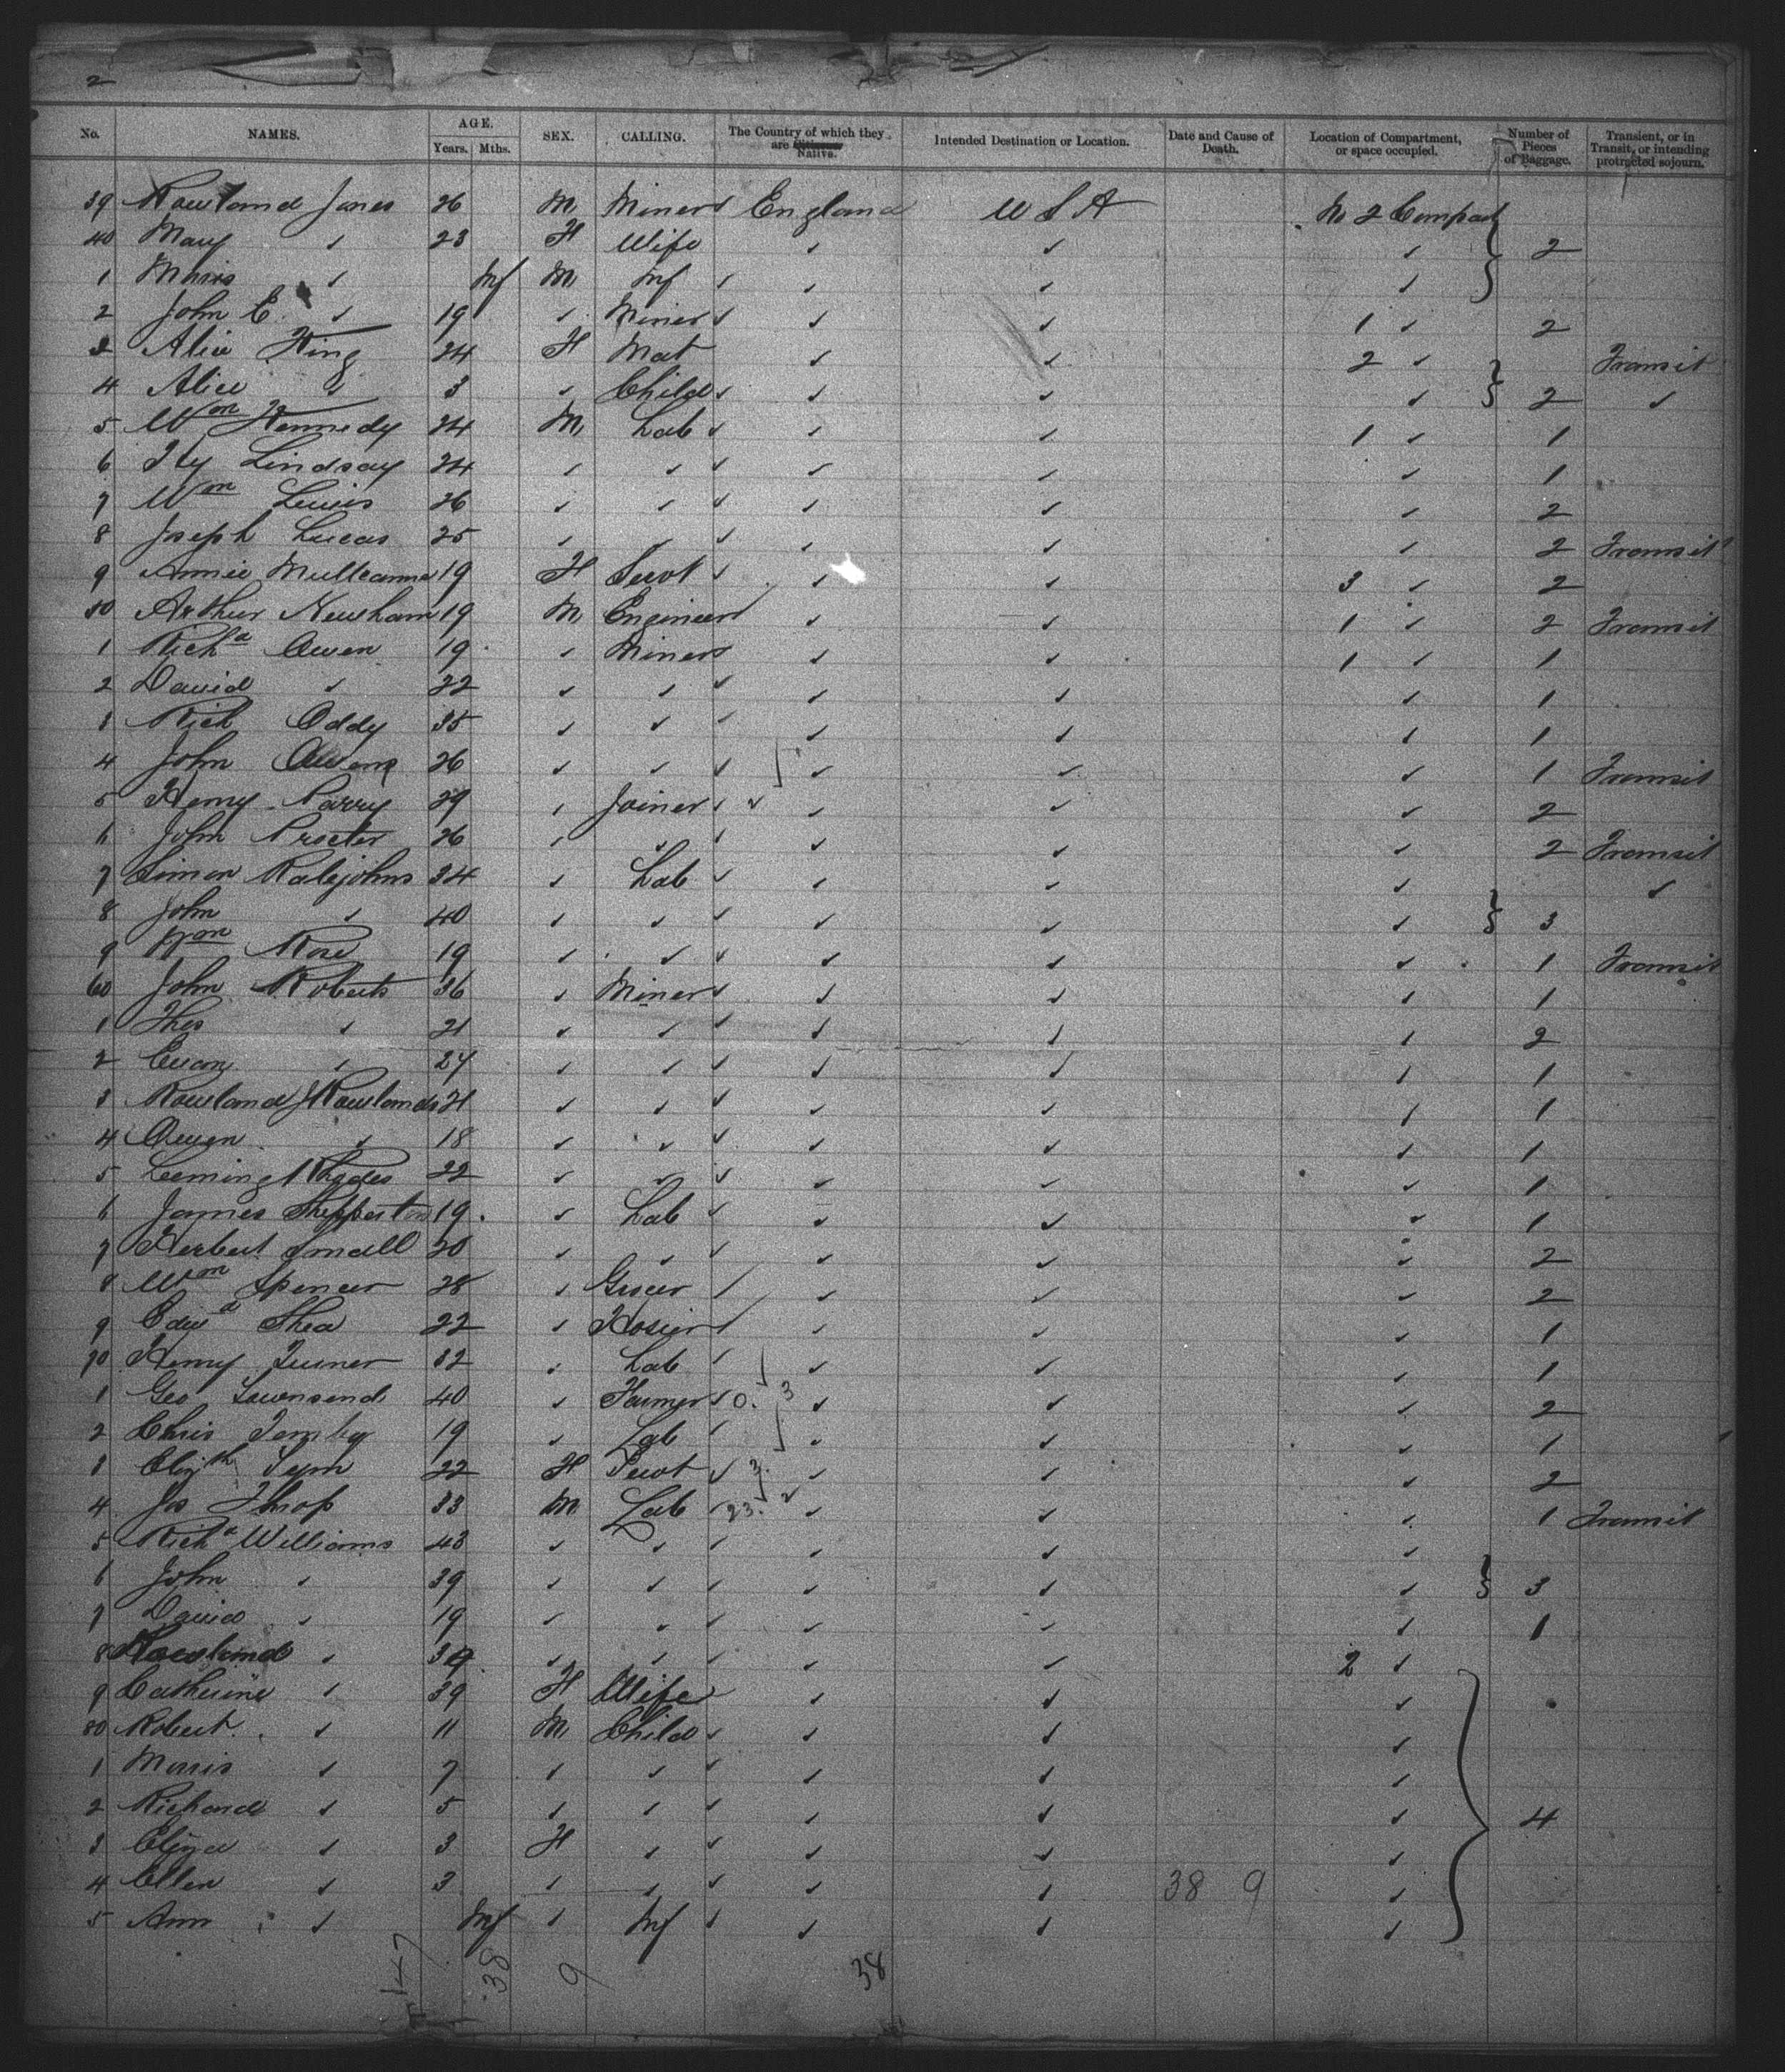 2
No. NAMES. AGE. Years. Mths. SEX. CALLING. The Country of which they are Citizens Native. Intended Destination or Location. Date and Cause of Death. Location of Compartment, or space occupied. Number of Pieces of Baggage. Transient, or in Transit, or intending protracted sojourn.
39 Rowland Jones 26 M Miner ✓ England U S A No 2 Compart
40 Mary ✓ 23 F Wife ✓ ✓ ✓ 2
1 ✓ Inf M Inf ✓ ✓ ✓ ✓
2 John E. ✓ 19 ✓ Miner ✓ ✓ ✓ 1 ✓ 2
3 Alice King 24 F Mat ✓ ✓ 2 ✓ Transit
4 Alice ✓ 3 ✓ Child ✓ ✓ ✓ ✓ 2 ✓
5 Wm Kennedy 24 M Lab ✓ ✓ ✓ 1 ✓ 1
6 Hy Lindsay 24 ✓ ✓ ✓ ✓ ✓ ✓ 1
7 Wm Lewis 26 ✓ ✓ ✓ ✓ ✓ ✓ 2
8 Joseph Lucas 25 ✓ ✓ ✓ ✓ ✓ ✓ 2 Transit
9 Annie 19 F Servt ✓ ✓ ✓ 3 ✓ 2
50 Arthur Newsham 19 M Engineer ✓ ✓ 1 ✓ 2 Transit
1 Richd Owen 19 ✓ Miner ✓ ✓ ✓ 1 ✓ 1
2 David ✓ 22 ✓ ✓ ✓ ✓ ✓ ✓ 1
3 Rich Oddy 35 ✓ ✓ ✓ ✓ ✓ ✓ 1
4 John Owens 26 ✓ ✓ ✓ ✓ ✓ ✓ 1 Transit
5 Henry Parry 29 ✓ Joiner ✓ ✓ ✓ ✓ ✓ 2
6 John Procter 26 ✓ ✓ ✓ ✓ ✓ ✓ 2 Transit
7 Simon Ralejohns 34 ✓ Lab ✓ ✓ ✓ ✓ ✓
8 John ✓ 40 ✓ ✓ ✓ ✓ ✓ ✓ 3
9 Wm Rose 19 ✓ ✓ ✓ ✓ ✓ ✓ 1 Transit
60 John Roberts 36 ✓ Miner ✓ ✓ ✓ ✓ 1
1 Thos ✓ 21 ✓ ✓ ✓ ✓ ✓ ✓ 2
2 Evan ✓ 24 ✓ ✓ ✓ ✓ ✓ ✓ 1
3 Rowland J Rowlands 21 ✓ ✓ ✓ ✓ ✓ ✓ 1
4 Owen ✓ 18 ✓ ✓ ✓ ✓ ✓ ✓ 1
5 Leeming Rhodes 22 ✓ ✓ ✓ ✓ ✓ ✓ 1
6 James Shepperton 19 ✓ Lab ✓ ✓ ✓ ✓ 1
7 Herbert Small 20 ✓ ✓ ✓ ✓ ✓ ✓ 2
8 Wm Spencer 28 ✓ Grocer ✓ ✓ ✓ 2
9 Edwd Shea 22 ✓ Hosier ✓ ✓ ✓ 1
70 Henry Turner 32 ✓ Lab ✓ ✓ ✓ ✓ 1
1 Geo Townsend 40 ✓ Farmer ✓ 0. 3 ✓ ✓ ✓ 2
2 Chris 19 ✓ Lab ✓ ✓ ✓ ✓ 1
3 Elizth 22 F Servt ✓ 3. ✓ ✓ ✓ 2
4 Jos Throp 33 M Lab ✓ 23. ✓ ✓ ✓ ✓ 1 Transit
5 Richd Williams 43 ✓ ✓ ✓ ✓ ✓ ✓
6 John ✓ 39 ✓ ✓ ✓ ✓ ✓ ✓ 3
7 David ✓ 19 ✓ ✓ ✓ ✓ ✓ ✓ 1
8 Rowland ✓ 39 ✓ ✓ ✓ ✓ ✓ 2 ✓
9 Catherine ✓ 39 F Wife ✓ ✓ ✓
80 Robert ✓ 11 M Child ✓ ✓ ✓ ✓
1 Morris ✓ 7 ✓ ✓ ✓ ✓ ✓ ✓
2 Richard ✓ 5 ✓ ✓ ✓ ✓ ✓ ✓ 4
3 Eliza ✓ 3 F ✓ ✓ ✓ ✓ ✓
4 Ellen ✓ 3 ✓ ✓ ✓ ✓ ✓ 38 9 ✓
5 Ann ✓ Inf ✓ Inf ✓ ✓ ✓ ✓
147 38 9 38